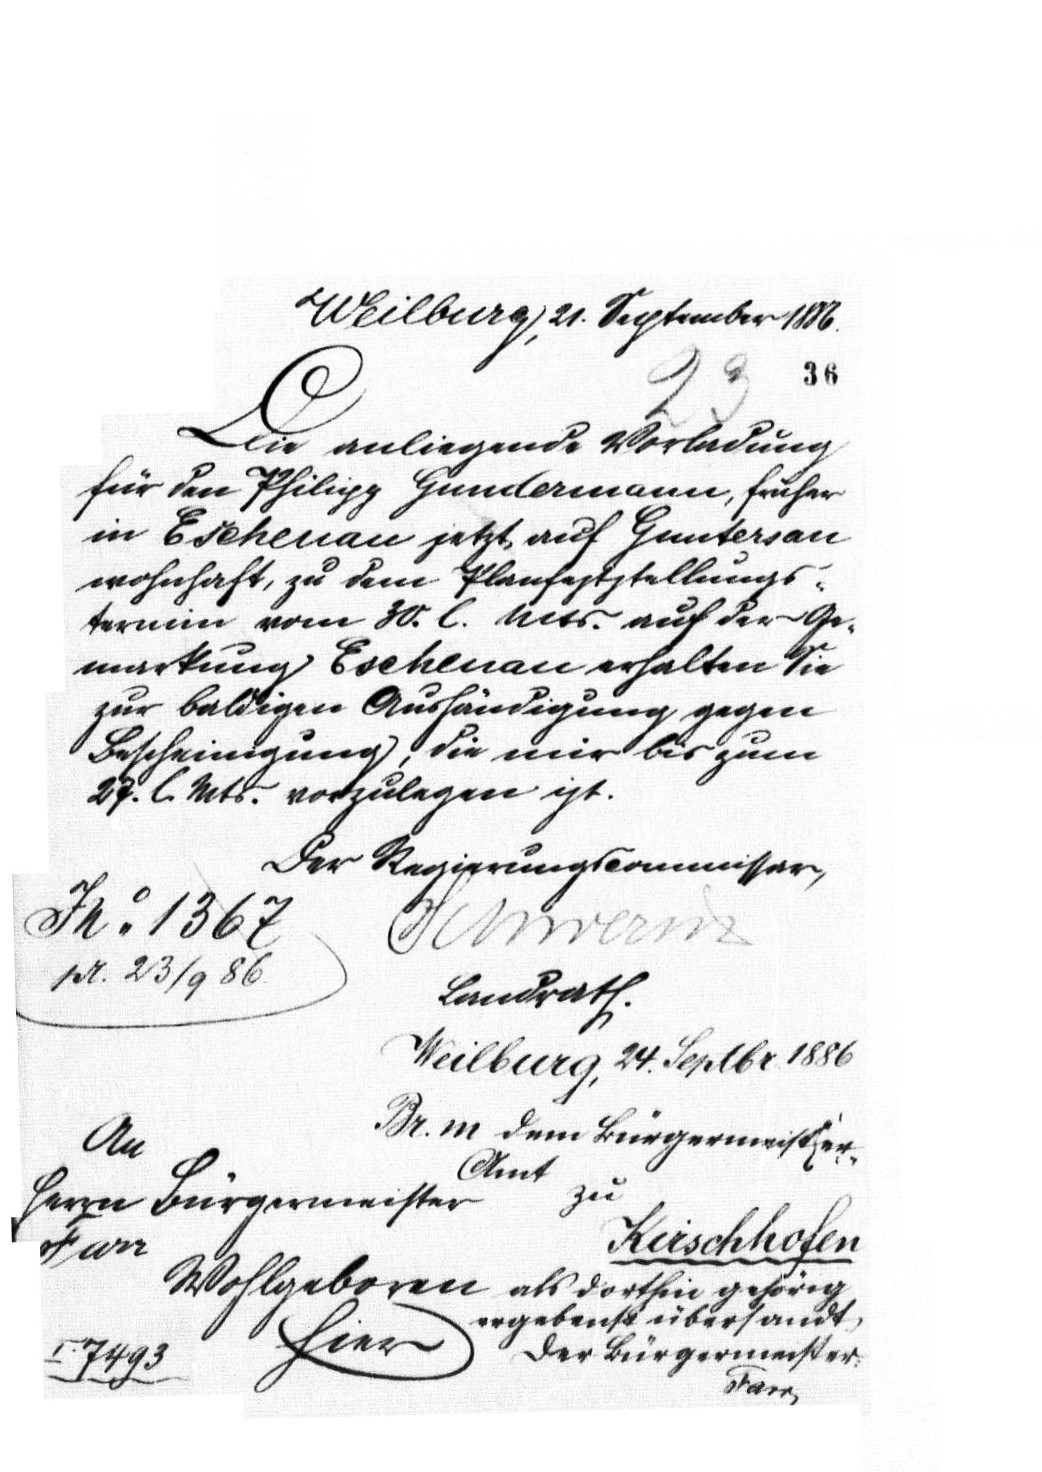 Weilburg, 21. September 1886.
23 36
Die anliegende Vorladung
für den Philipp Gundermann, früher
in Eschenau jetzt auf Guntersau
wohnhaft, zu dem Planfeststellungs-
termin vom 30. l. Mts. auf der Ge-
markung Eschenau erhalten Sie
zur baldigen Aushändigung gegen
Bescheinigung, die mir bis zum
27. l. Mts. vorzulegen ist.
Der Regierungscommissar,
JNo. 1367
pr. 23/9 86.
Landrath.
Weilburg, 24. Septbr. 1886
Br. m dem Bürgermeister-
Amt zu
Kirschhofen
als dorthin gehörig
ergebenst übersandt,
Der Bürgermeister.
Farr
An
Herrn Bürgermeister
Farr
Wohlgeboren
hier
I. 7493